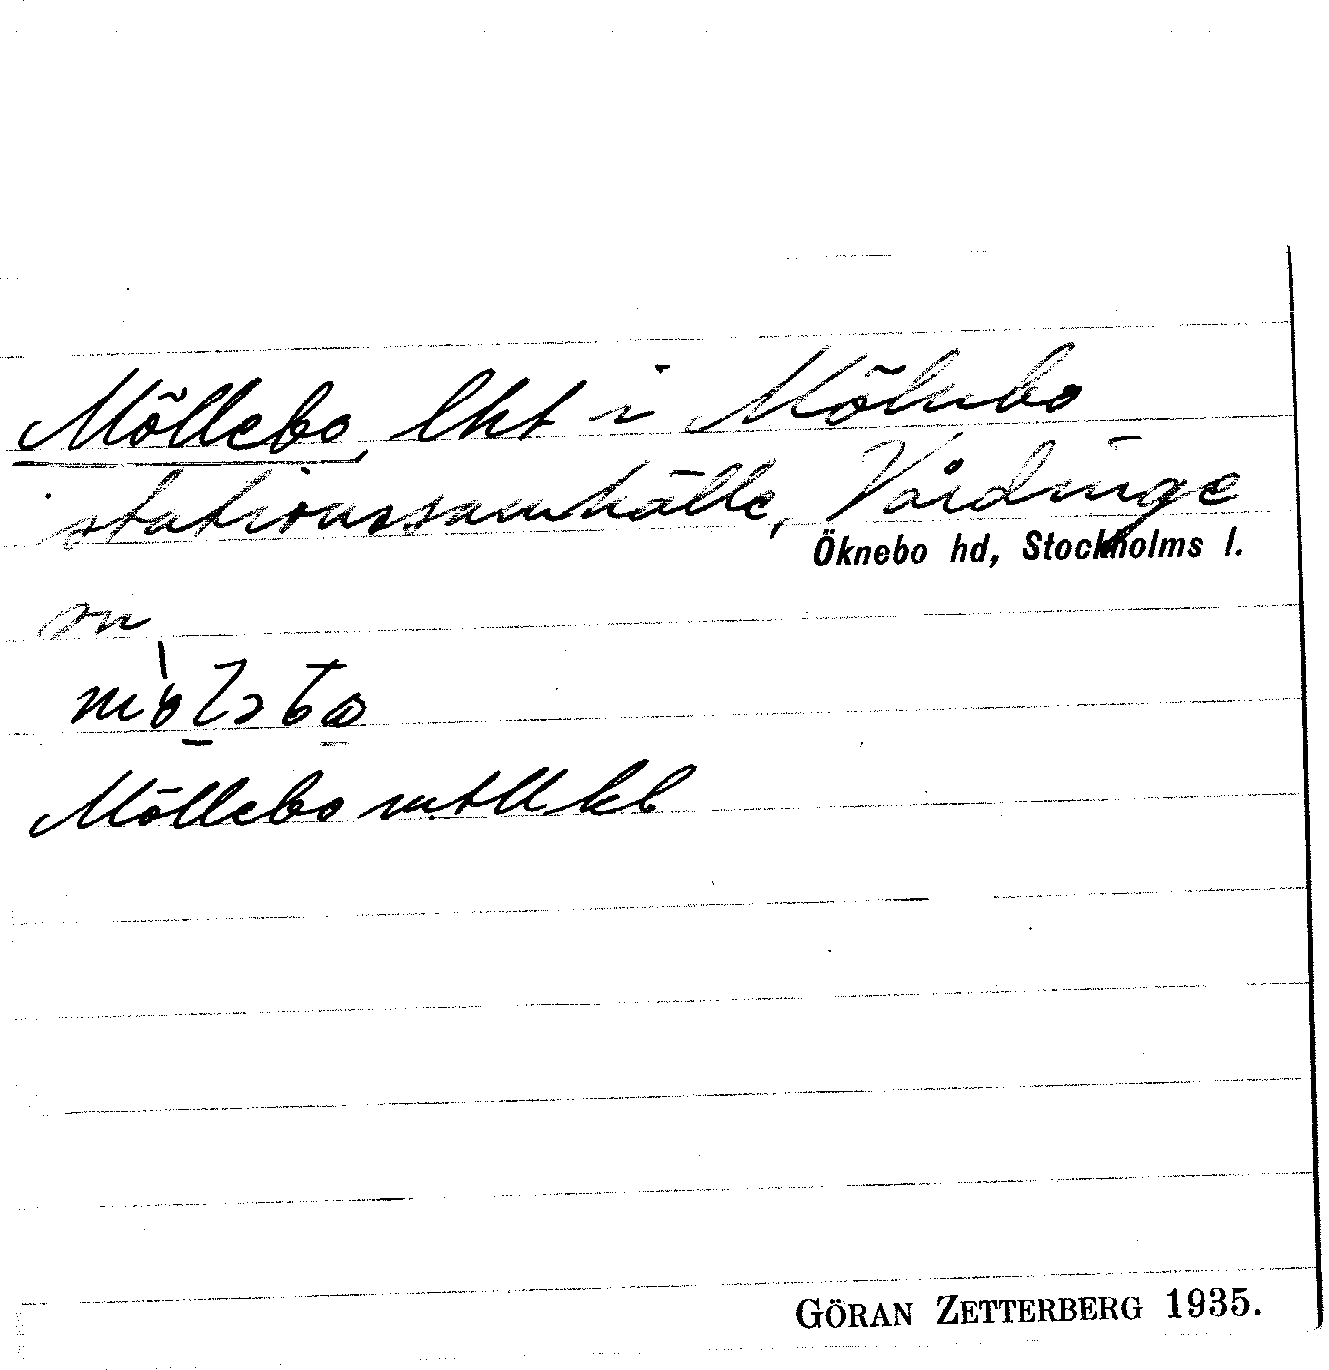 Möllebo, lht i Mölnbo
stationssamhälle, Vårdinge
Öknebo hd, Stockholms l.
sn
Möllebo mtll kb
GÖRAN ZETTERBERG 1935.